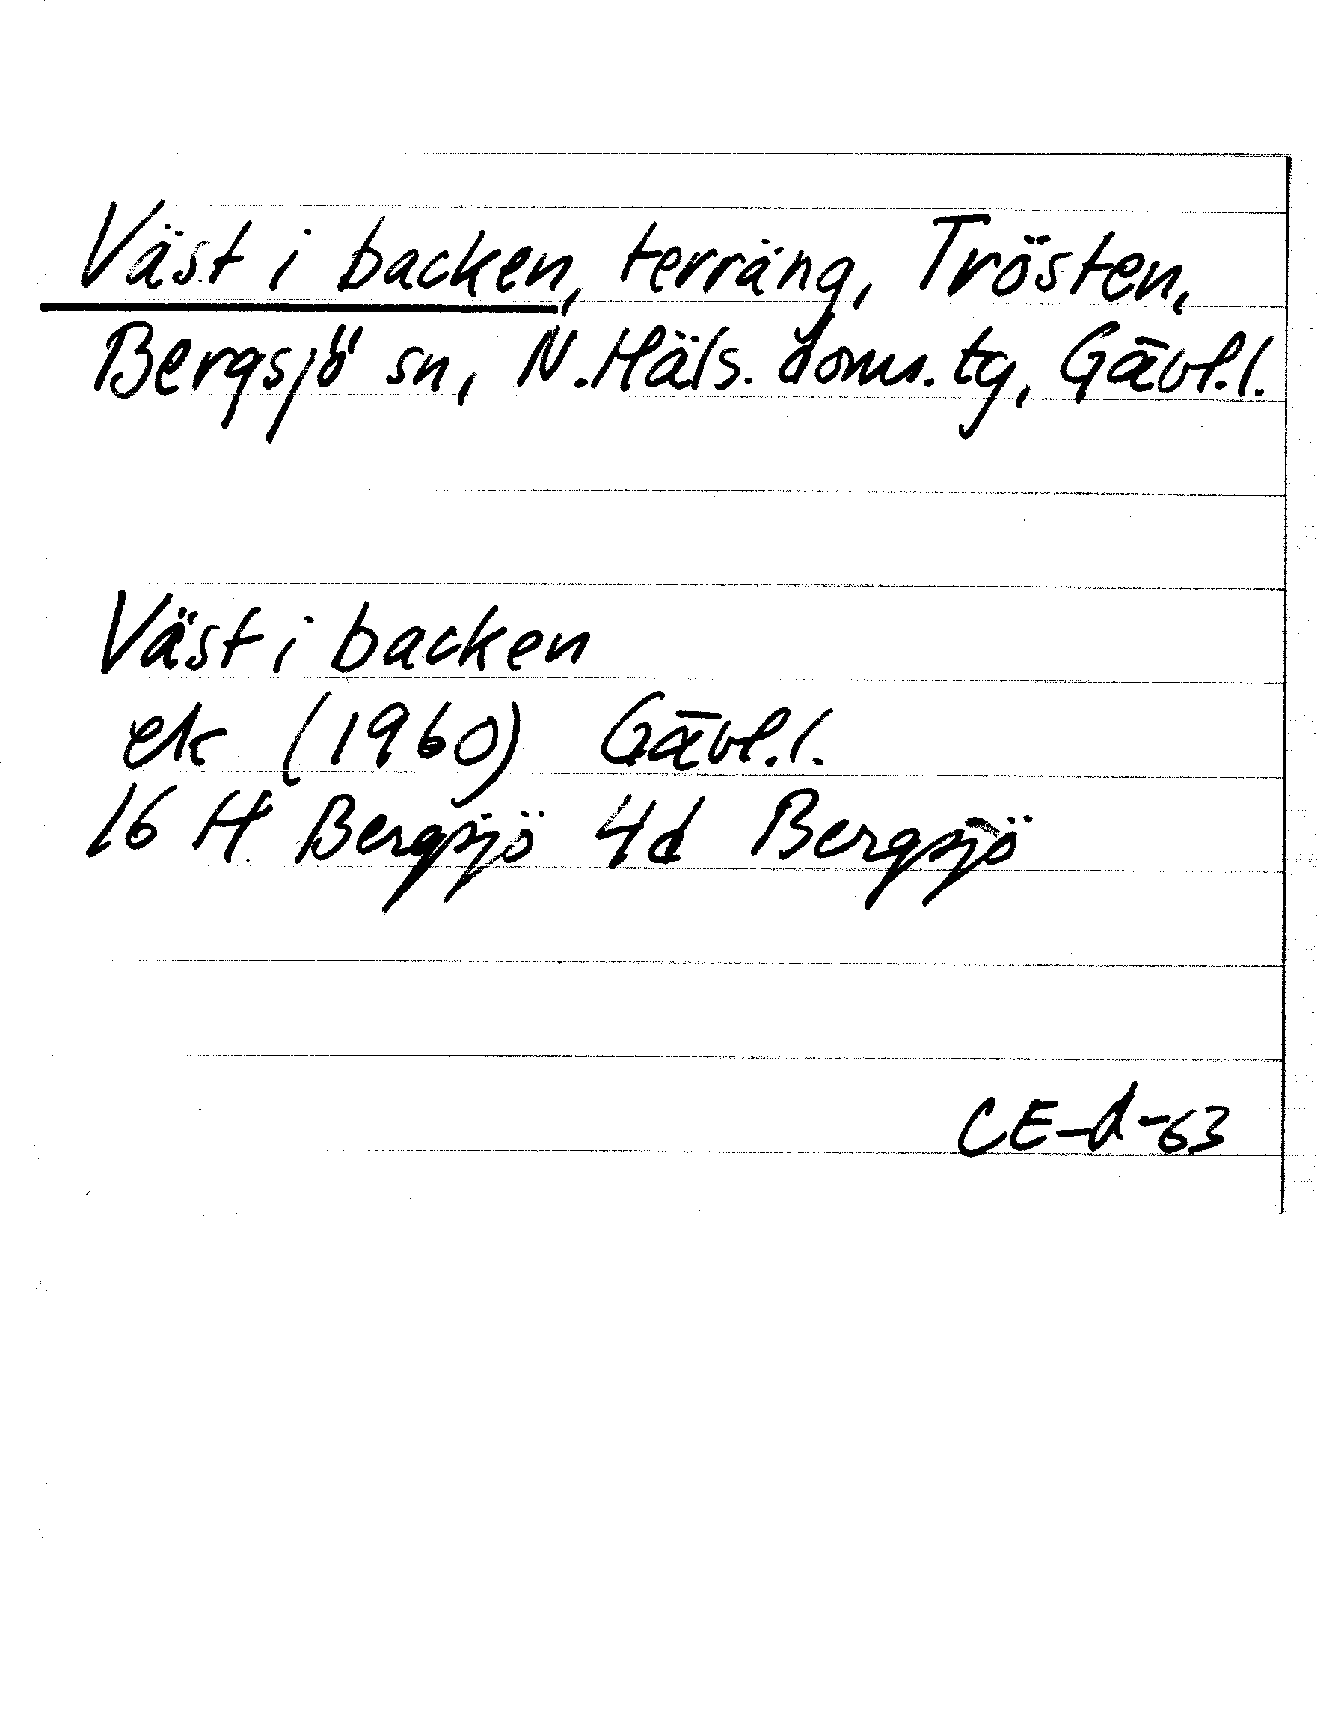 Väst i backen, terräng, Trösten,
Bergsjö sn, N.Häls. doms.tg, Gävl.l.
Väst i backen
ek (1960) Gävl.l.
16 H Bergsjö 4d Bergsjö
CE-d-63